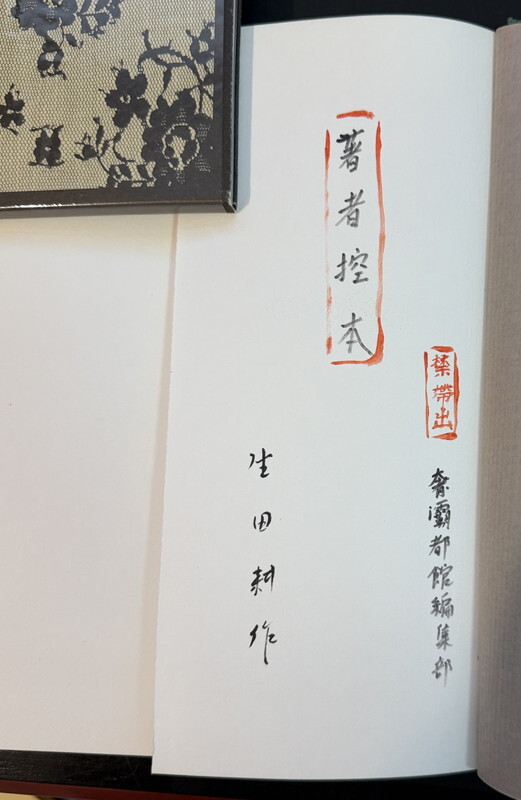 禁帯出
奢灞都館編集部
著者控本
生田耕作